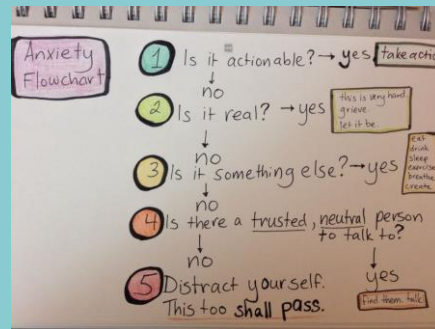 Anxiety
Flowchart
1 Is it actionable? → yes take actio
↓
no
2 Is it real? → yes this is very hard.
grieve.
let it be.
↓
no
3 Is it something else? → yes eat
drink
sleep
exercise
breathe
create
↓
no
4 Is there a trusted, neutral person
to talk to?
↓
no
↓
yes
find them. talk
5 Distract yourself.
This too shall pass.